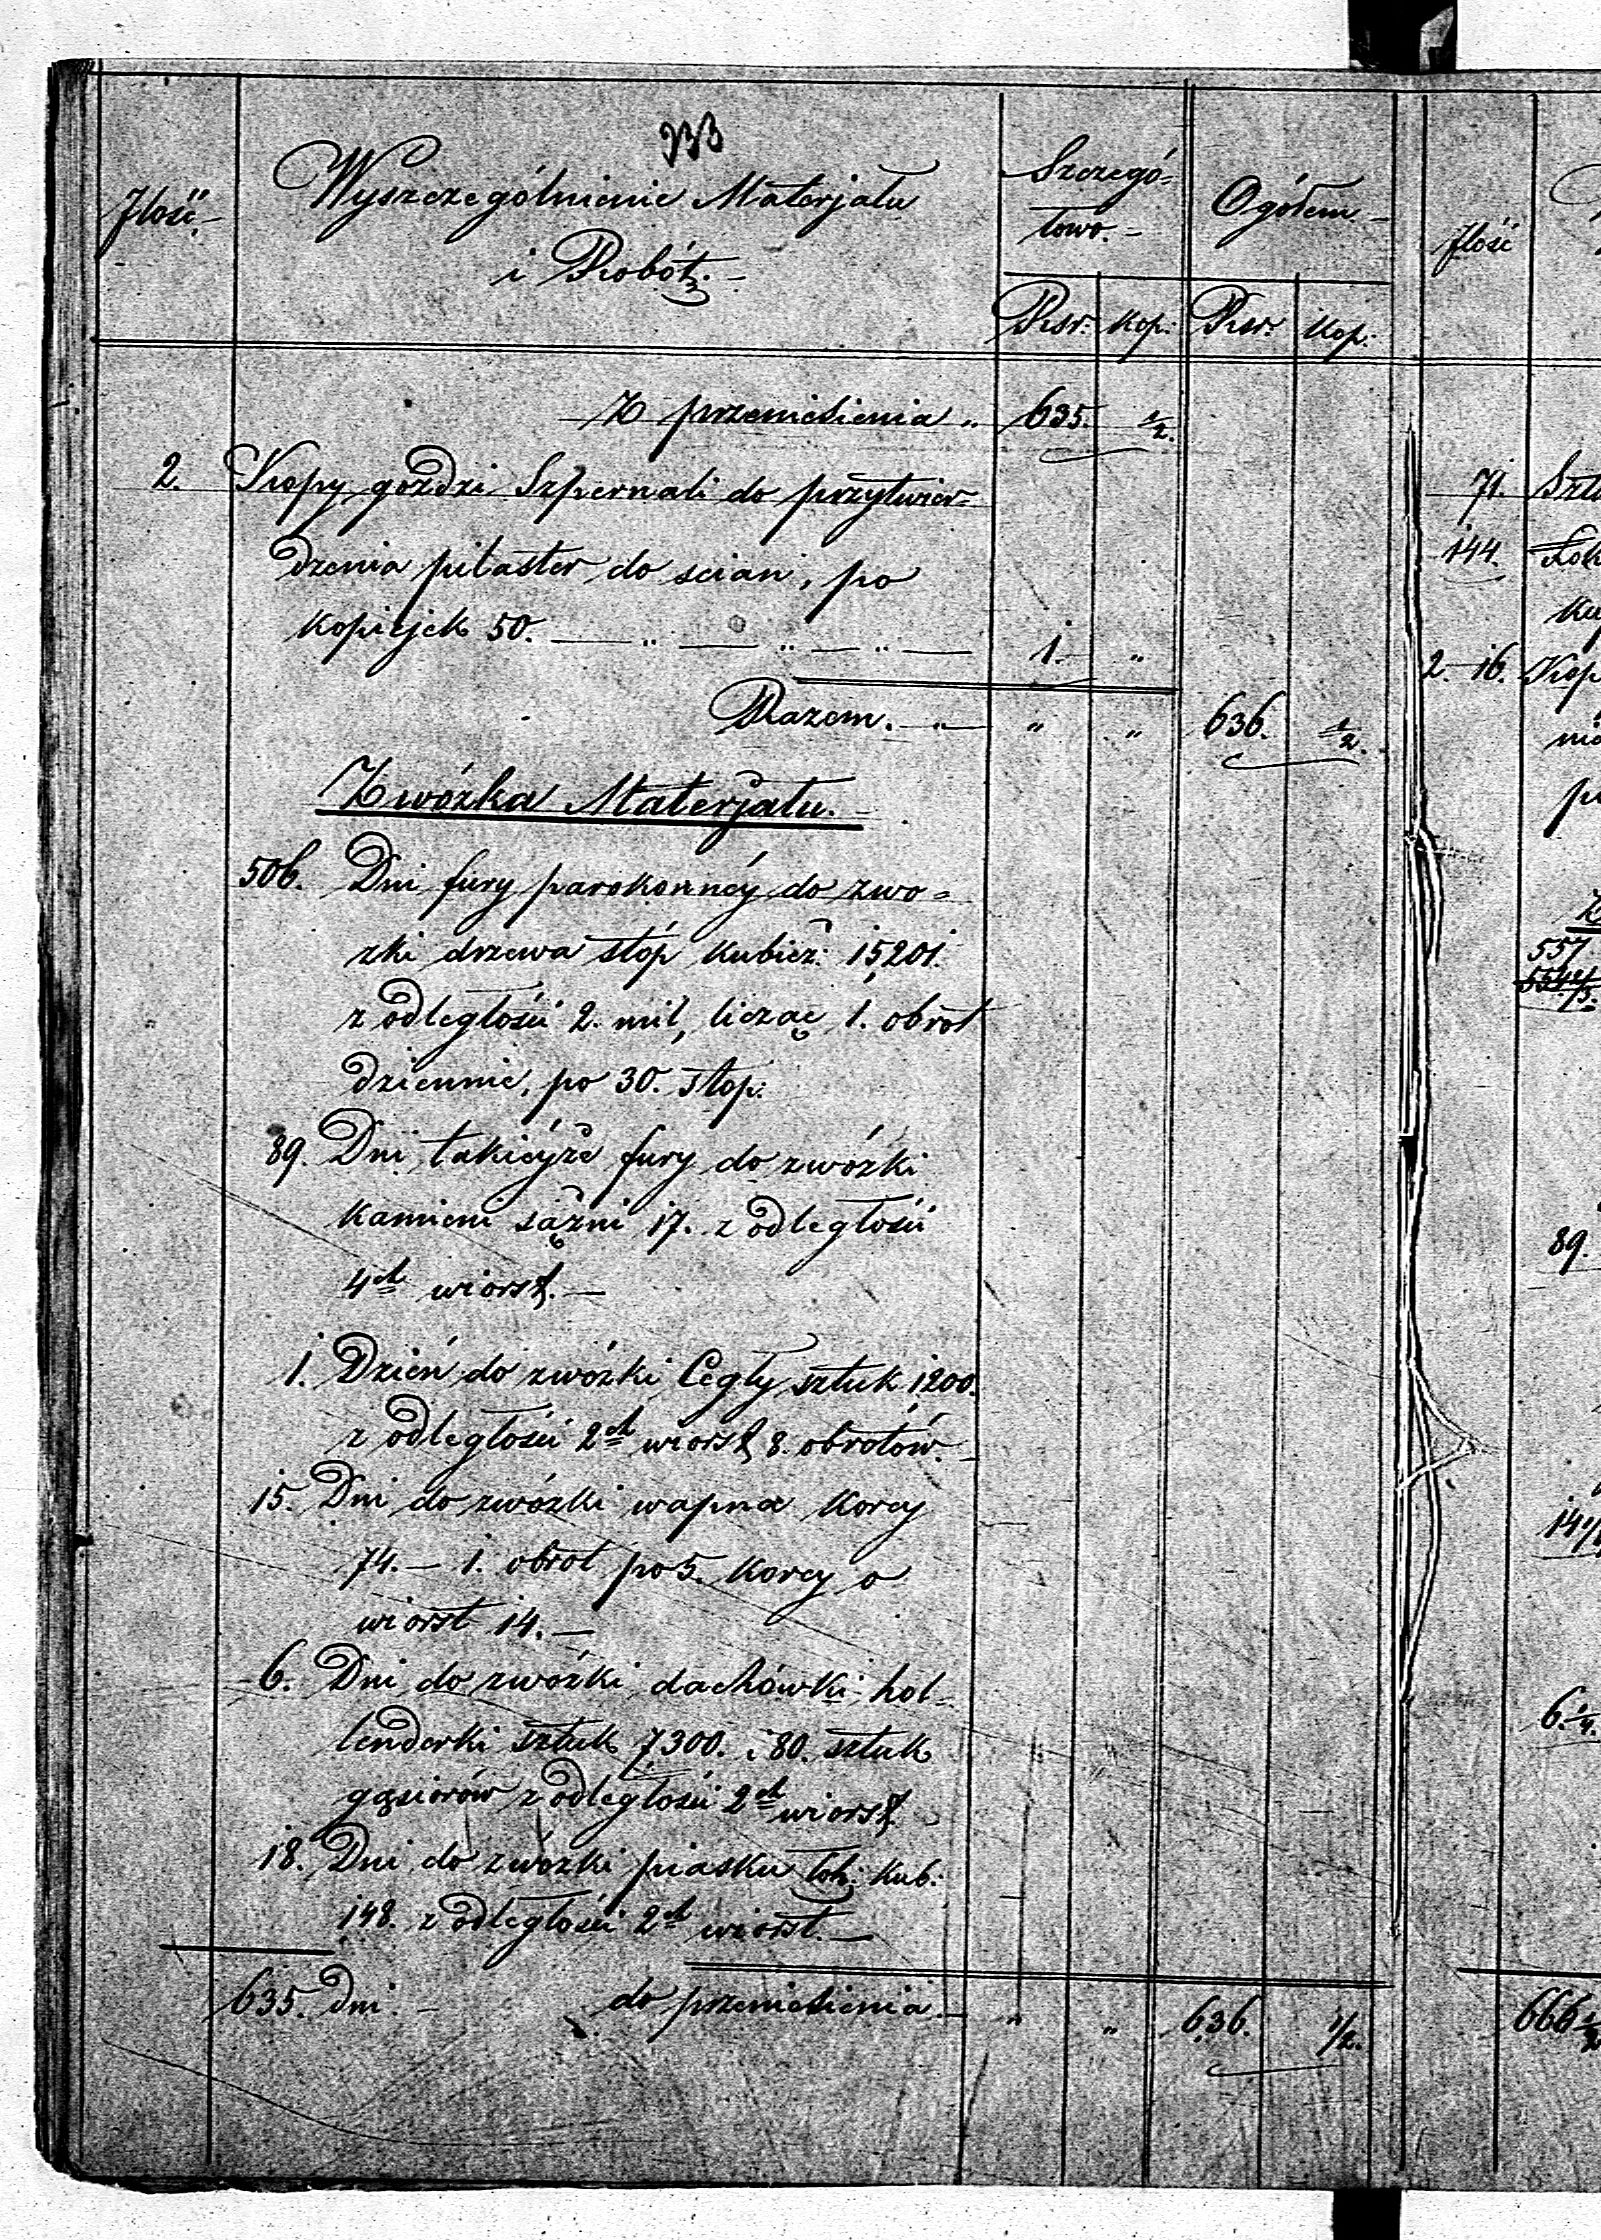 933
Ilość.
Wyszczególnienie Materjału
i Robót.
Szczegó-
łowo.
Ogółem
Rsr: Kop: Rsr: Kop:
Z przeniesienia „ 635. 1/2.
2. Kopy goździ Szpernali do przytwier-
dzenia pilaster do scian, po
kopiejek 50. — „ — „ — „ — 1. „
Razem. „ „ „ 636. 1/2.
Zwózka Materjału.
506. Dni fury parokonnéy do zwo-
zki drzewa stóp kubicz: 15,201.
z odległości 2. mil, licząc 1. obrot
dziennie, po 30. stop:
89. Dni takiéyże fury do zwózki
kamieni sążni 17. z odległości
4ch wiorst. —
1. Dzień do zwózki Cegły sztuk 1200.
z odległości 2ch wiorst 8. obrotów. —
15. Dni do zwózki wapna Korcy
74. — 1. obrot po 5. Korcy o
wiorst 14. —
6. Dni do zwózki dachówki hol-
lenderki sztuk 7300. i 80. sztuk
gąsiorów z odległości 2ch wiorst.
18. Dni do zwózki piasku łok: kub:
148. z odległości 2ch wiorst. —
635. dni. — do przeniesienia — „ „ 636. 1/2.
Ilość
71.
144.
2. 16.
557
89.
6. 1/4.
666 1/2